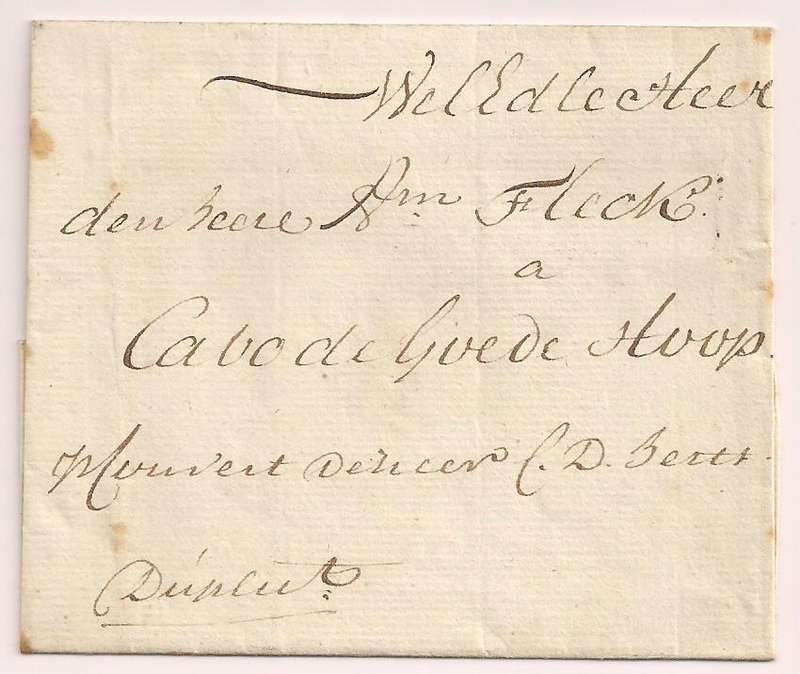 Wel Edle Heer
den heere Wm. Fleck.
a
Cabo de Goede Hoop.
p Couvert den heer C. D.
Duplicat.